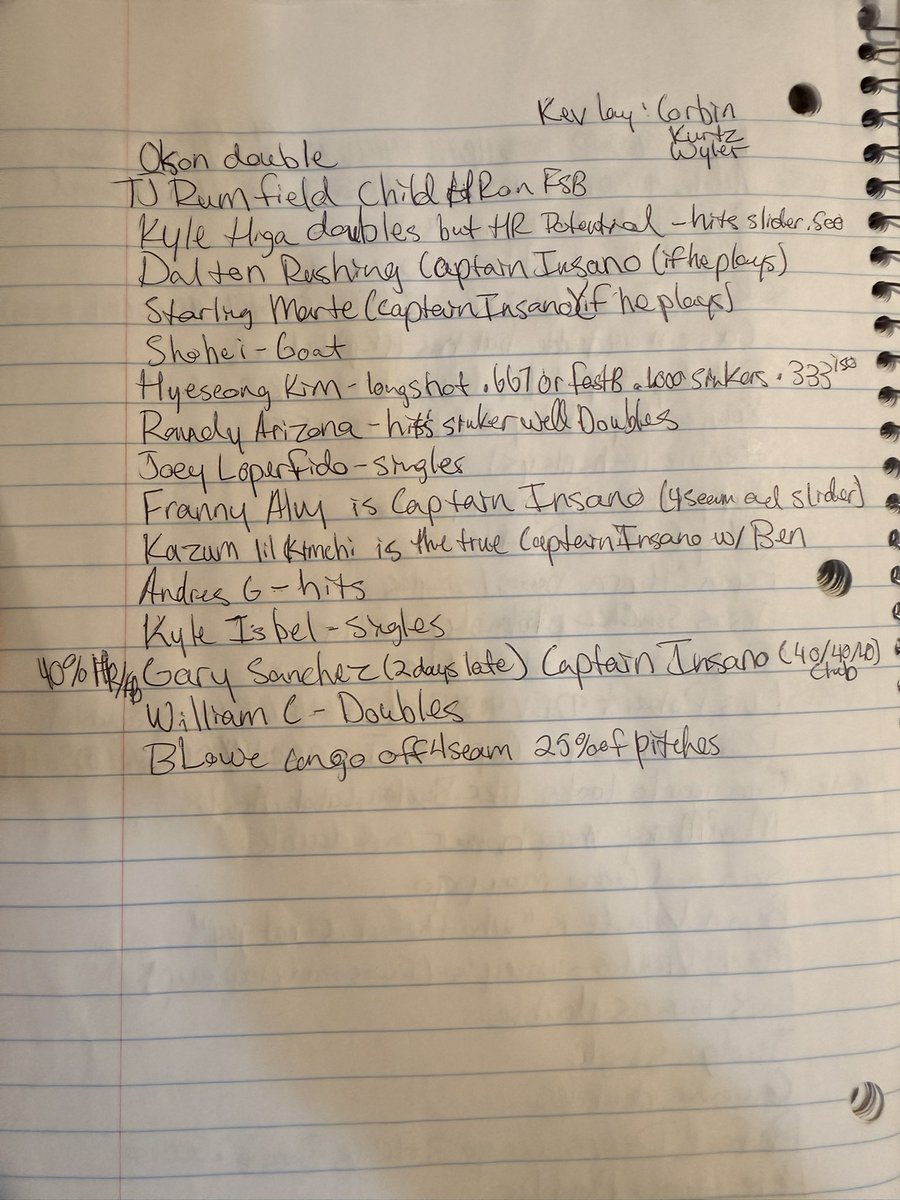 Kev Lay: Corbin
Kurtz
Wyler
Okson double
TJ Rumfield Child HRon FSB
Kyle Higa doubles but HR Potential - hits slider, See
Dalton Rushing Captain Insano (if he plays)
Starling Marte (Captain Insano) (if he plays)
Shohei - Goat
Hyeseong Kim - longshot .667 or fastB .1000 sinkers .333 iso
Randy Arizona - hits sinker well Doubles
Joey Loperfido - singles
Franny Alvy is Captain Insano (4seam ad slider)
Kazum lil Kimchi is the true Captain Insano w/ Ben
Andres G - hits
Kyle Isbel - singles
40% HR/AB Gary Sanchez (2 days late) Captain Insano (40/40/40)
Club
William C - Doubles
BLowe can go off 4seam 25% of pitches